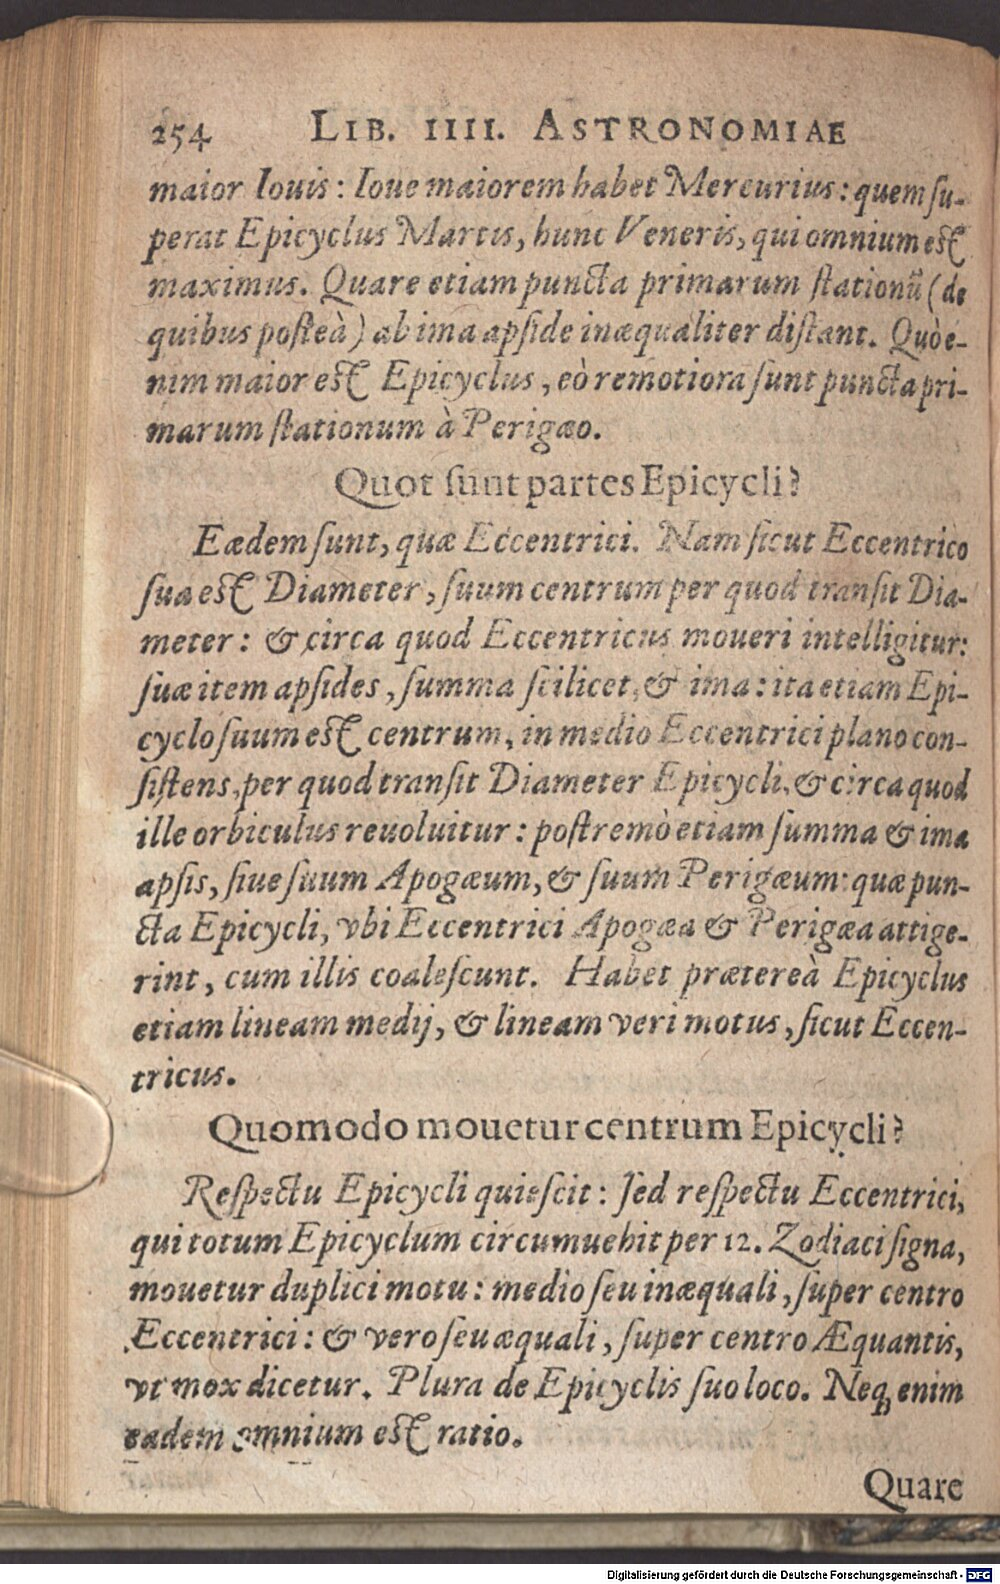 254 LIB. IIII. ASTRONOMIAE
maior Iouis: Ioue maiorem habet Mercurius: quem ſu-
perat Epicyclus Martis, hunc Veneris, qui omnium eſt
maximus. Quare etiam puncta primarum ſtationũ (de
quibus poſteà) ab ima apſide inæqualiter diſtant. Quò e-
nim maior eſt Epicyclus, eò remotiora ſunt puncta pri-
marum ſtationum à Perigæo.
Quot ſunt partes Epicycli?
Eædem ſunt, quæ Eccentrici. Nam ſicut Eccentrico
ſua eſt Diameter, ſuum centrum per quod tranſit Dia-
meter: & circa quod Eccentricus moueri intelligitur:
ſuæ item apſides, ſumma ſcilicet, & ima: ita etiam Epi-
cyclo ſuum eſt centrum, in medio Eccentrici plano con-
ſiſtens, per quod tranſit Diameter Epicycli, & circa quod
ille orbiculus reuoluitur: poſtremò etiam ſumma & ima
apſis, ſiue ſuum Apogæum, & ſuum Perigæum: quæ pun-
cta Epicycli, vbi Eccentrici Apogæa & Perigæa attige-
rint, cum illis coaleſcunt. Habet prætereà Epicyclus
etiam lineam medij, & lineam veri motus, ſicut Eccen-
tricus.
Quomodo mouetur centrum Epicycli?
Reſpectu Epicycli quieſcit: ſed reſpectu Eccentrici,
qui totum Epicyclum circumuehit per 12. Zodiaci ſigna,
mouetur duplici motu: medio ſeu inæquali, ſuper centro
Eccentrici: & vero ſeu æquali, ſuper centro Æquantis,
vt mox dicetur. Plura de Epicyclis ſuo loco. Neq; enim
eadem omnium eſt ratio.
Quare
Digitalisierung gefördert durch die Deutsche Forschungsgemeinschaft - DFG